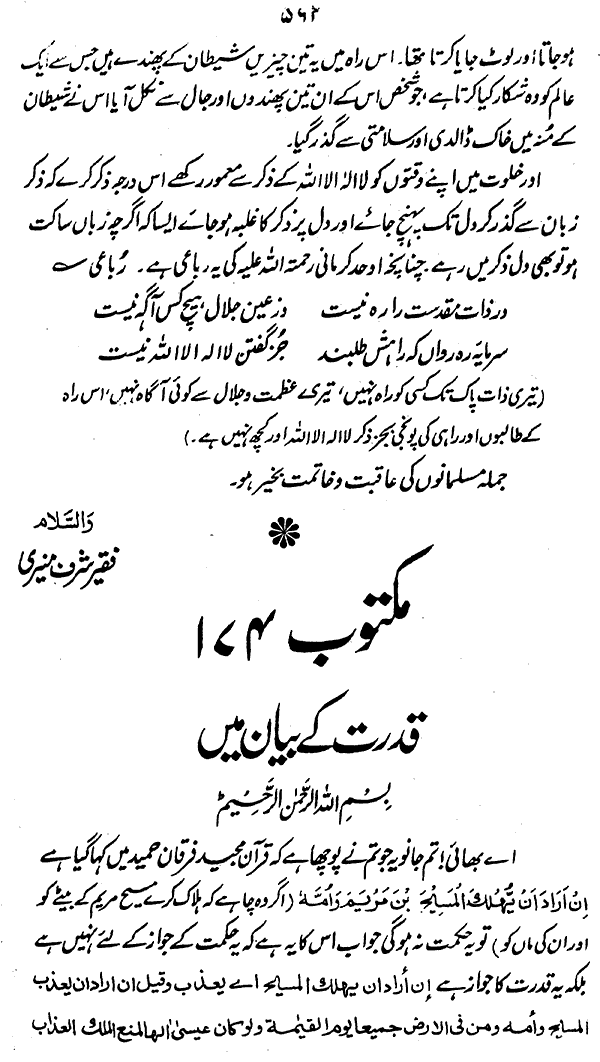 ۵۶۲
ہوجاتا اور لوٹ جایا کرتا تھا۔ اس راہ میں یہ تین چیزیں شیطان کے پھندے ہیں جس سے ایک
عالم کو وہ شکار کیا کرتا ہے، جو شخص اس کے ان تین پھندوں اور جال سے نکل آیا اس نے شیطان
کے مُنہ میں خاک ڈالدی اور سلامتی سے گذر گیا۔
اور خلوت میں اپنے وقتوں کو لا الہ الا اللہ کے ذکر سے معمور رکھے اس درجہ ذکر کرے کہ ذکر
زبان سے گذر کر دل تک پہنچ جائے اور دل پر ذکر کا غلبہ ہوجائے ایسا کہ اگرچہ زباں ساکت
ہو تو بھی دل ذکر میں رہے۔ چنانچہ اوحد کرمانی رحمتہ اللہ علیہ کی یہ رباعی ہے۔ رُباعی ؎
در ذات مقدست را رہ نیست وز عین جلال ہیچ کس آگہ نیست
سرمایۂ رہ رواں کہ راہش طلبند جُز گفتن لا الہ الا اللہ نیست
(تیری ذات پاک تک کسی کو راہ نہیں، تیرے عظمت و جلال سے کوئی آگاہ نہیں، اس راہ
کے طالبوں اور راہی کی پونجی بجز ذکر لا الہ الا اللہ اور کچھ نہیں ہے۔)
جملہ مسلمانوں کی عاقبت و خاتمت بخیر ہو۔
وَالسَّلام
فقیر شرف منیری
مکتوب ۱۷۴
قدرت کے بیان میں
بِسْمِ اللہِ الرَّحْمٰنِ الرَّحِیْمِ
اے بھائی! تم جانو یہ جو تم نے پوچھا ہے کہ قرآن مجید فرقان حمید میں کہا گیا ہے
اِنْ اَرَادَ اَنْ یُّھْلِكَ الْمَسِیْحَ بْنَ مَرْیَمَ وَاُمَّهٗ (اگر وہ چاہے کہ ہلاک کرے مسیح مریم کے بیٹے کو
اور ان کی ماں کو) تو یہ حکمت نہ ہوگی جواب اس کا یہ ہے کہ یہ حکمت کے جواز کے لئے نہیں ہے
بلکہ یہ قدرت کا جواز ہے إن أراد ان یهلك المسیح اے یعذب وقیل ان اراد ان یعذب
المسیح وأمه ومن فی الارض جمیعا یوم القیٰمة ولو کان عیسیٰ الٰها لمنع الملك العذاب